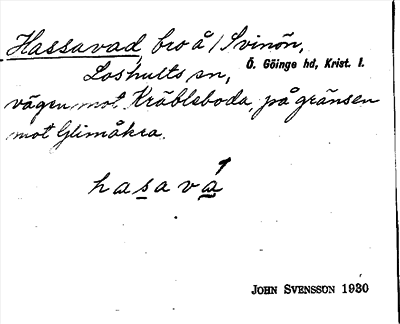 Hassavad, bro å /Svinön,
Loshults sn, Ö. Göinge hd, Krist. l.
vägen mot Kräbleboda, på gränsen
mot Glimåkra.
hasavá
JOHN SVENSSON 1930